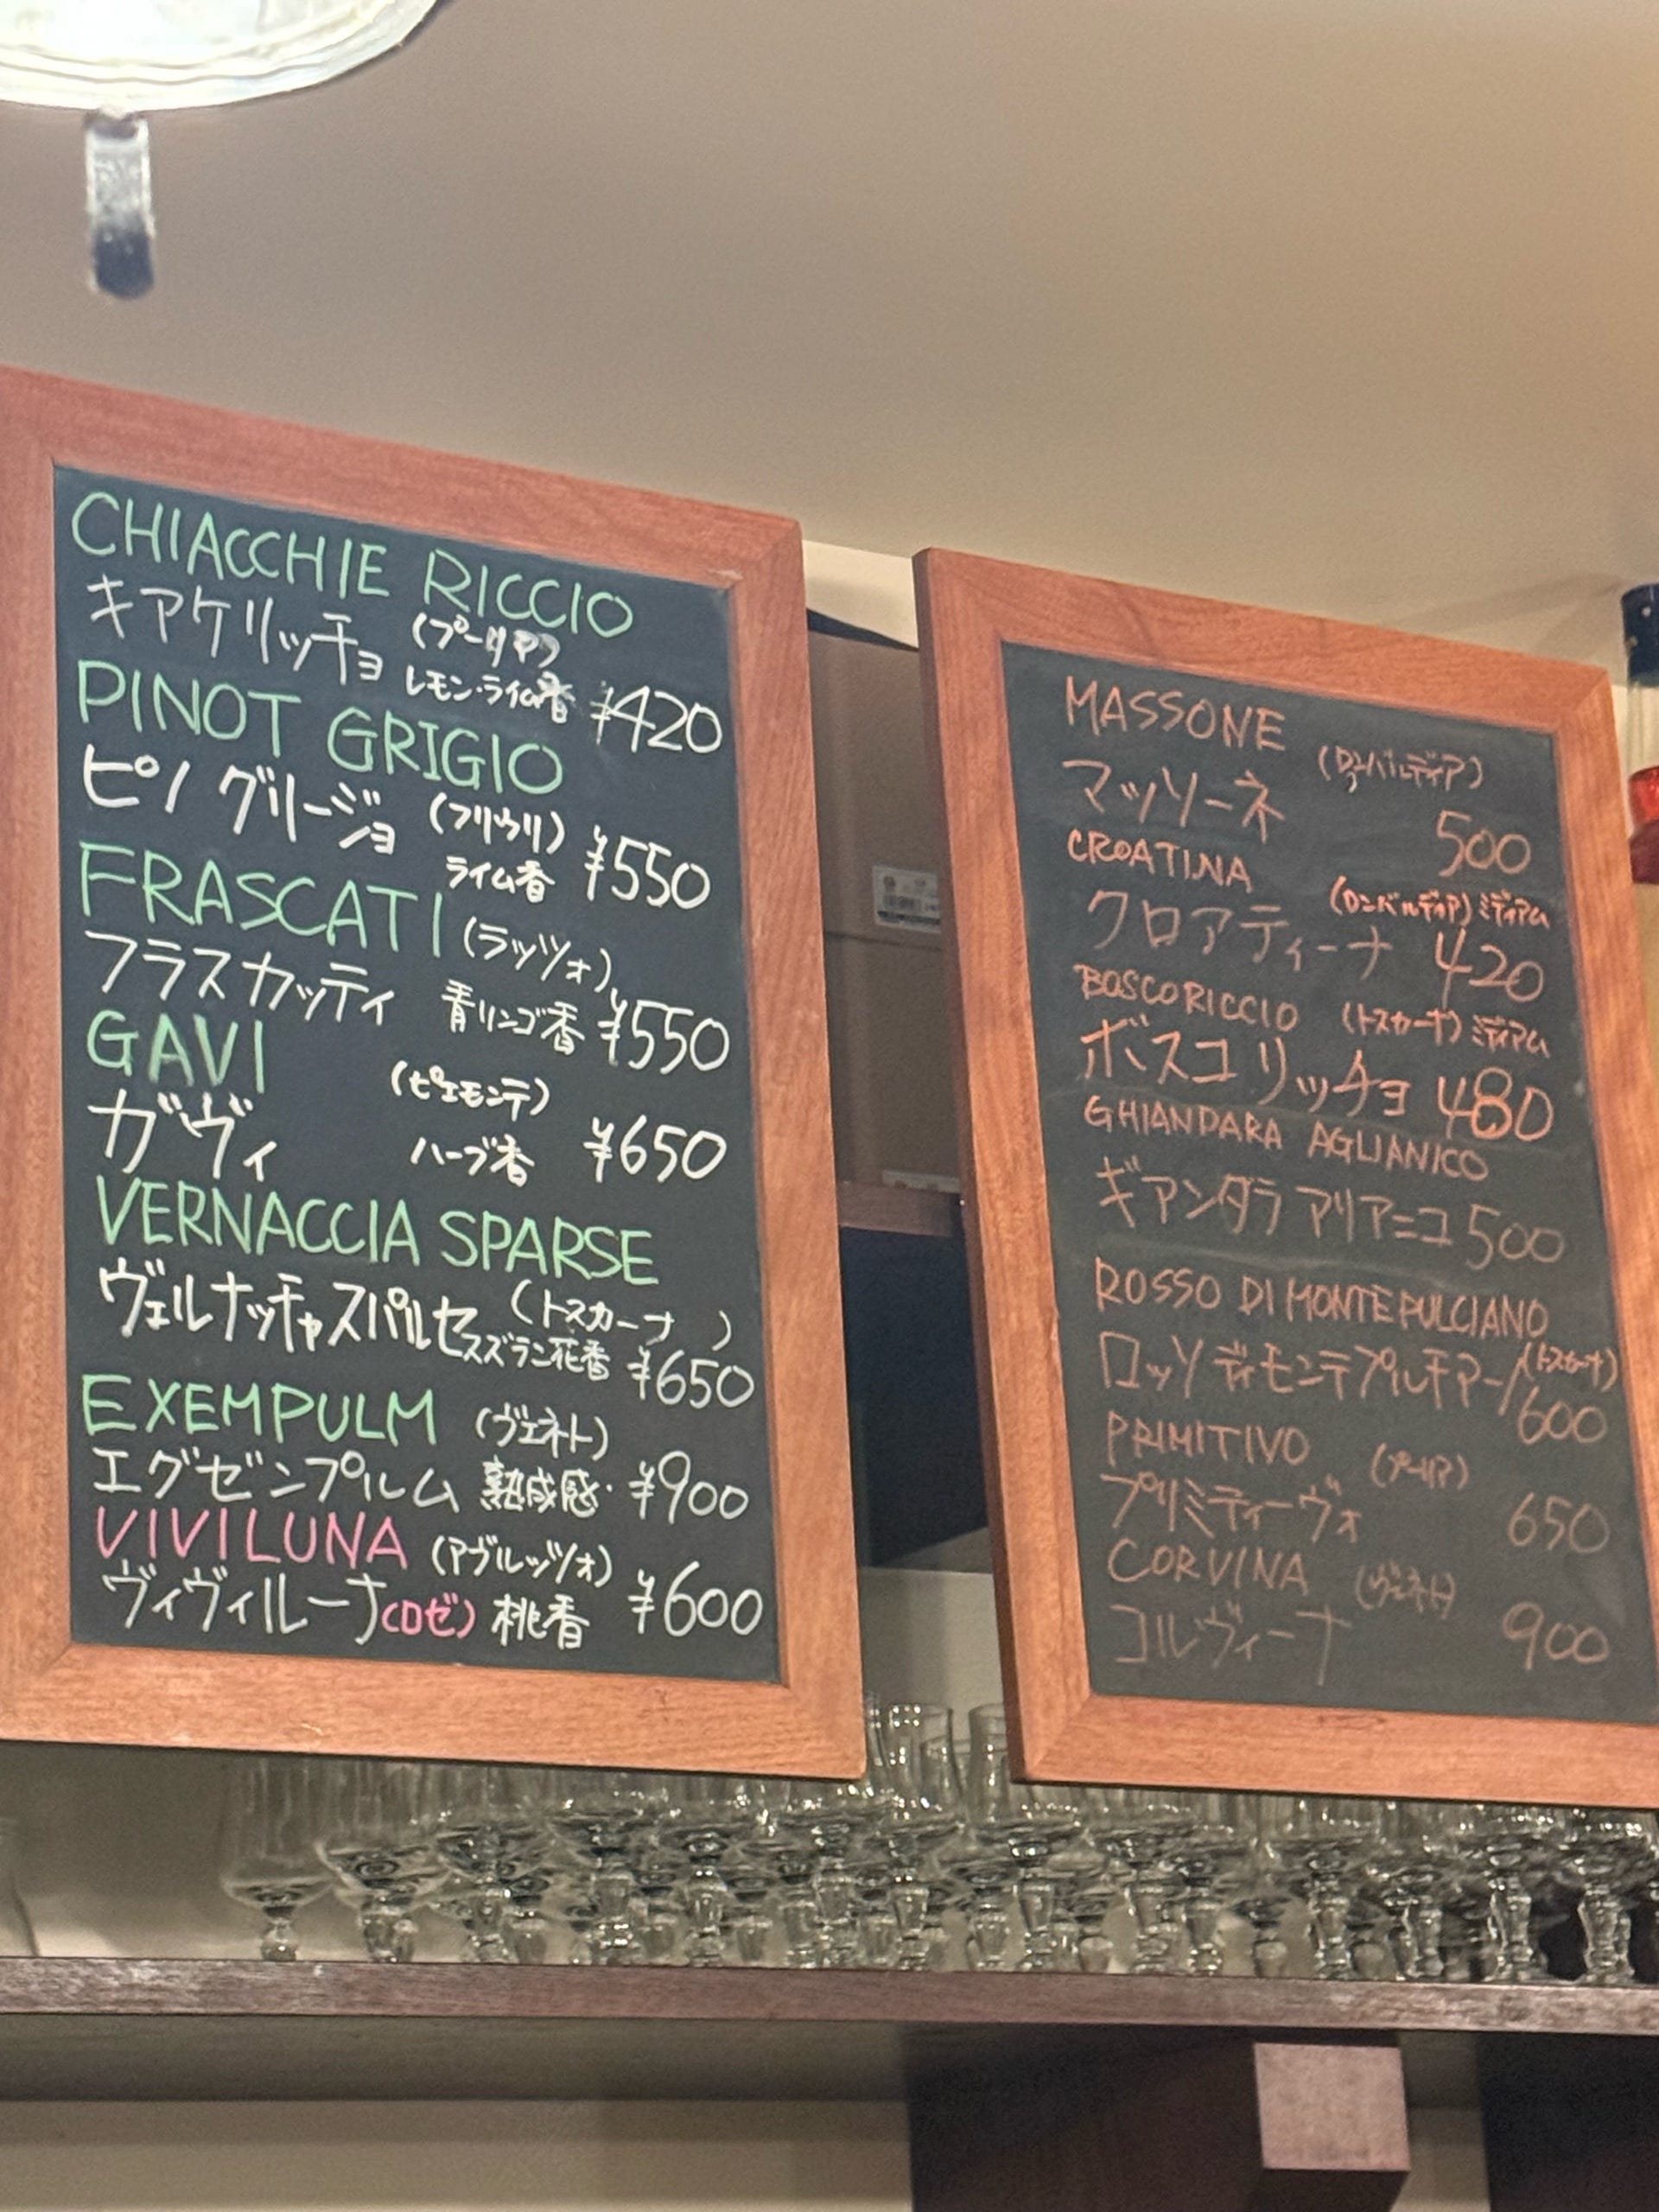 CHIACCHIE RICCIO
キアケリッチョ (プーリア)
レモン・ライム香 ¥420
PINOT GRIGIO
ピノ グリージョ (フリウリ)
ライム香 ¥550
FRASCATI (ラッツォ)
フラスカッティ 青リンゴ香 ¥550
GAVI (ピエモンテ)
ガヴィ ハーブ香 ¥650
VERNACCIA SPARSE
ヴェルナッチャスパルセ (トスカーナ)
スズラン花香 ¥650
EXEMPULM (ヴェネト)
エグゼンプルム 熟成感・ ¥900
VIVILUNA (アヴルッツォ)
ヴィヴィルーナ(ロゼ) 桃香 ¥600
MASSONE (ロンバルディア)
マッソーネ 500
CROATINA (ロンバルディア) ミディアム
クロアティーナ 420
BOSCORICCIO (トスカーナ) ミディアム
ボスコリッチョ 480
GHIANDARA AGLIANICO
ギアンダラ アリアニコ 500
ROSSO DI MONTEPULCIANO
ロッソ ディ モンテプルチアーノ (トスカーナ)
600
PRIMITIVO (プーリア)
プリミティーヴォ 650
CORVINA (ヴェネト)
コルヴィーナ 900